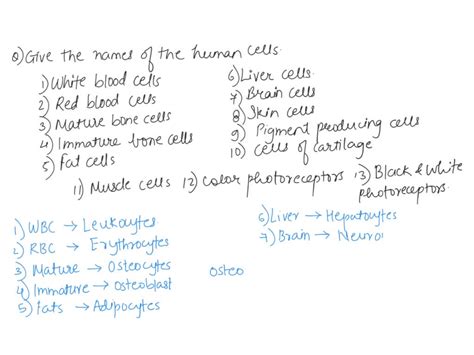 Q) Give the names of the human cells.
1) White blood cells
2) Red blood cells
3) Mature bone cells
4) Immature bone cells
5) Fat cells
6) Liver cells.
7) Brain cells
8) Skin cells
9) Pigment producing cells
10) Cells of cartilage
11) Muscle cells 12) Color photoreceptors 13) Black & White photoreceptors.
1) WBC → Leukocytes
2) RBC → Erythrocytes
3) Mature → Osteocytes
4) Immature → Osteoblast
5) Fats → Adipocytes
osteo
6) Liver → Hepatocytes
7) Brain → Neuro